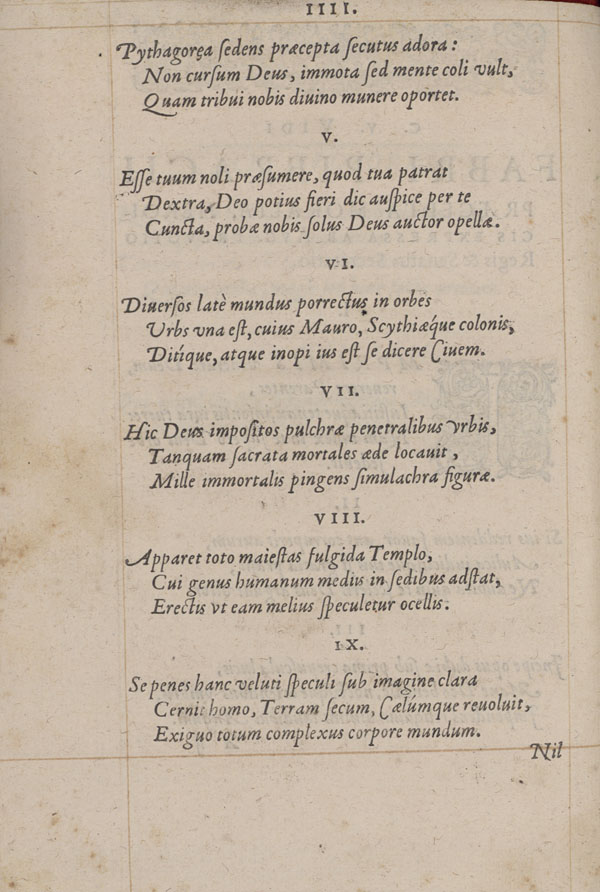 IIII.
Pythagorea sedens præcepta secutus adora:
Non cursum Deus, immota sed mente coli vult,
Quam tribui nobis diuino munere oportet.
V.
Esse tuum noli præsumere, quod tua patrat
Dextra, Deo potius fieri dic auspice per te
Cuncta, probæ nobis solus Deus auctor opellæ.
VI.
Diuersos latè mundus porrectus in orbes
Vrbs vna est, cuius Mauro, Scythiæque colonis,
Ditique, atque inopi ius est se dicere Ciuem.
VII.
Hic Deus impositos pulchræ penetralibus vrbis,
Tanquam sacrata mortales æde locauit,
Mille immortalis pingens simulachra figuræ.
VIII.
Apparet toto maiestas fulgida Templo,
Cui genus humanum mediis in sedibus adstat,
Erectis vt eam melius speculetur ocellis.
IX.
Se penes hanc veluti speculi sub imagine clara
Cernit homo, Terram secum, Cælúmque reuoluit,
Exiguo totum complexus corpore mundum.
Nil